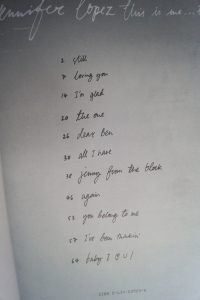 Jennifer Lopez this is me...
2 still
7 loving you
14 I'm glad
20 the one
26 dear Ben
30 all I have
38 jenny from the block
46 again
53 you belong to me
57 I've been thinkin'
64 baby I ♥ U!
ISBN